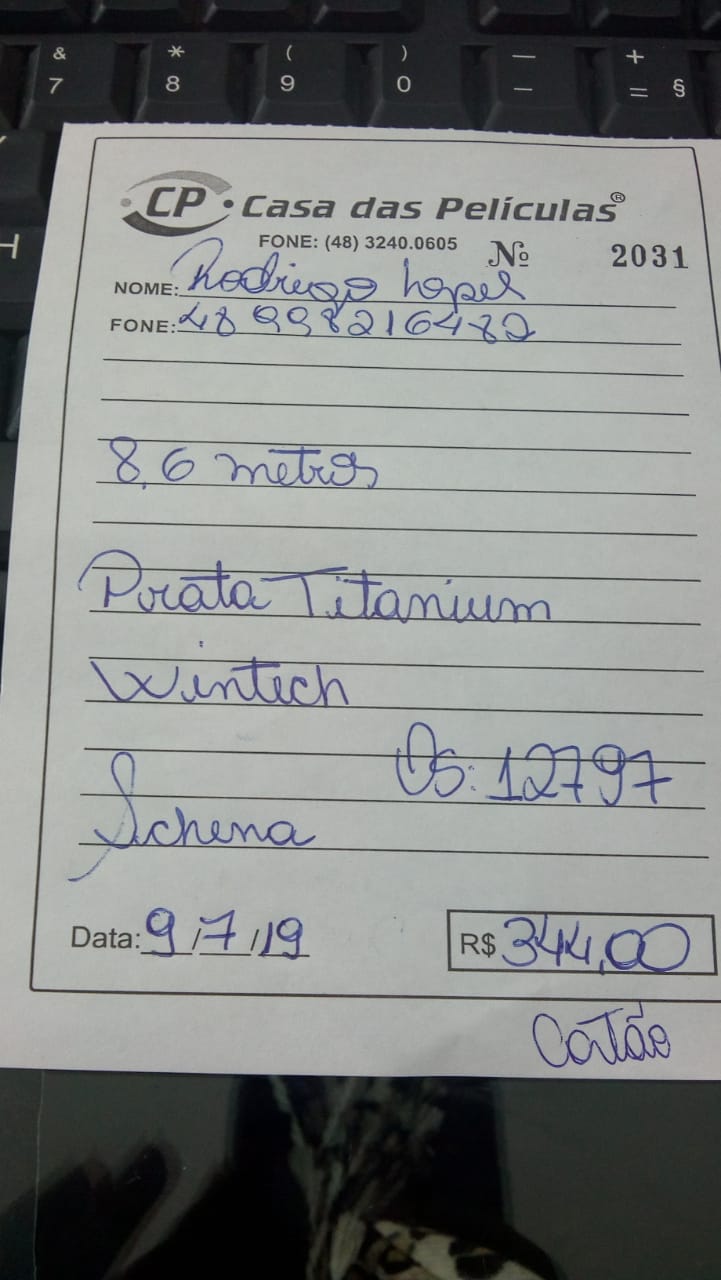 & * ( ) — +
7 8 9 0 - = §
H
CP · Casa das Películas®
FONE: (48) 3240.0605 Nº 2031
NOME: Rodrigo Lopes
FONE: 48 998216482
8,6 metros
Prata Titanium
Wintech
Os: 12797
Schena
Data: 9/7/19 R$ 344,00
Cartão